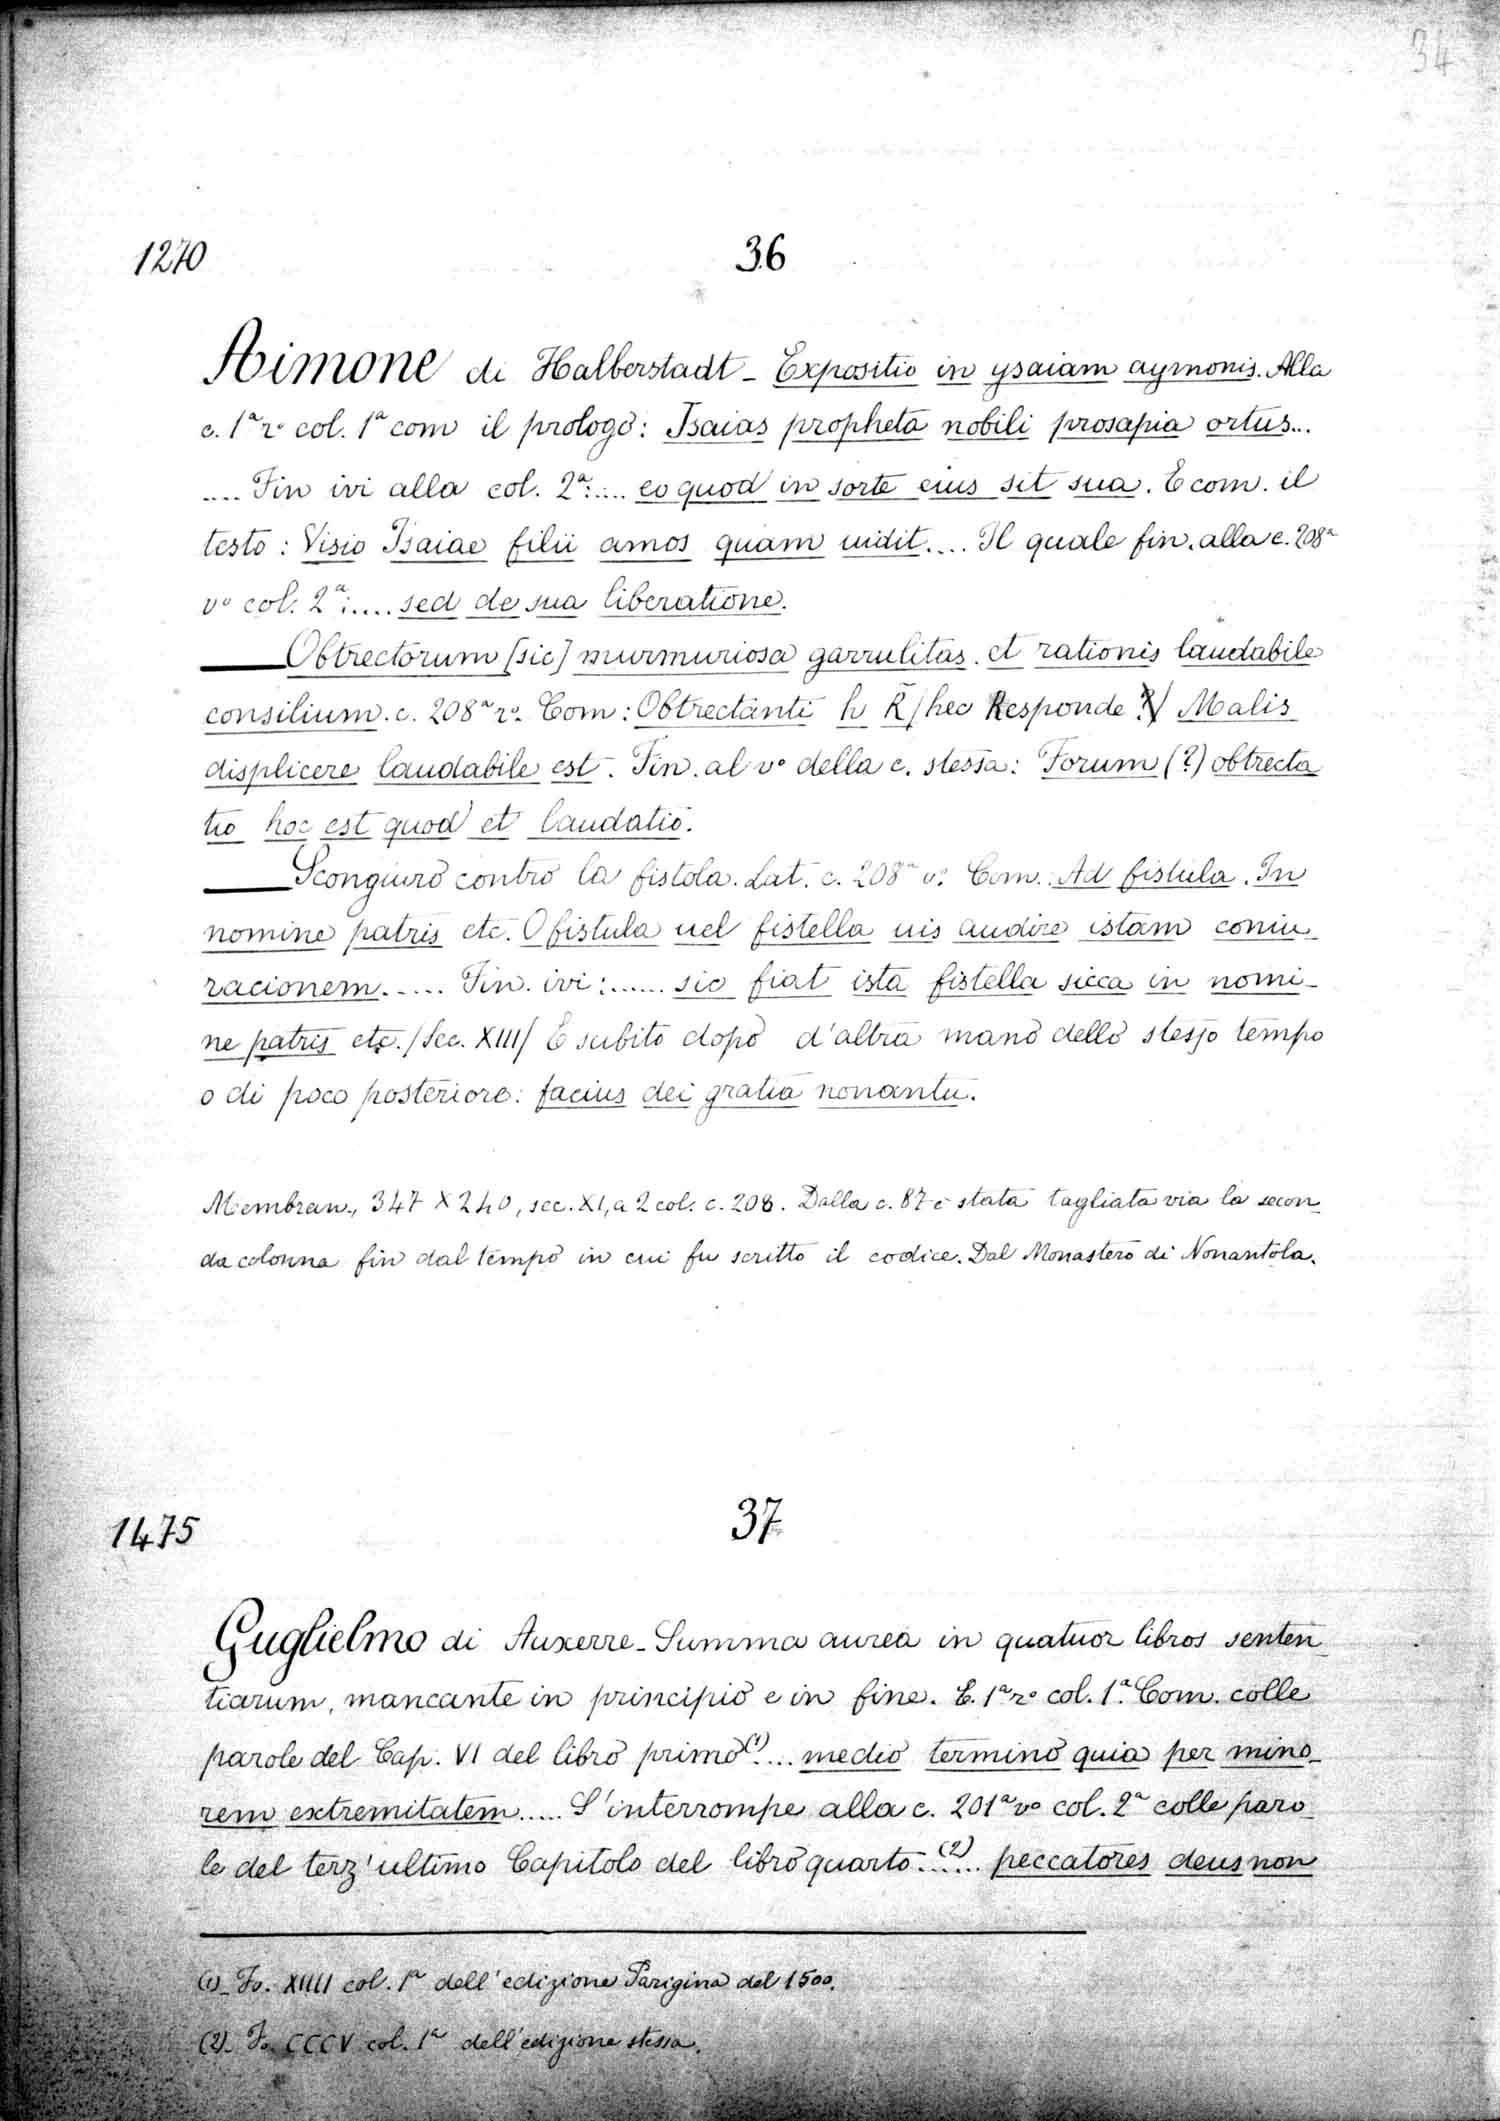 34
1270
36
Aimone di Halberstadt - Expositio in ysaiam aymonis. Alla
c. 1ª rº col. 1ª com il prologo: Isaias propheta nobili prosapia ortus...
.... Fin ivi alla col. 2ª:.... eo quod in sorte eius sit sua. E com. il
testo: Visio Isaiae filii amos quam uidit.... Il quale fin. alla c. 208ª
vº col. 2ª:.... sed de sua liberatione.
Obtrectorum [sic] murmuriosa garrulitas. et rationis laudabile
consilium. c. 208ª rº. Com: Obtrectanti h R̃ /hec Responde ?/ Malis
displicere laudabile est. Fin. al vº della c. stessa: Forum (?) obtrecta
tio hoc est quod et laudatio.
Scongiuro contro la fistola. Lat. c. 208ª vº. Com.: Ad fistula. In
nomine patris etc. O fistula uel fistella uis audire istam coniu_
racionem..... Fin. ivi:...... sic fiat ista fistella sicca in nomi_
ne patris etc. /Sec. XIII/ E subito dopo d'altra mano dello stesso tempo
o di poco posteriore: facius dei gratia nonantu.
Membran., 347 X 240, sec. XI, a 2 col. c. 208. Dalla c. 87 è stata tagliata via la secon_
da colonna fin dal tempo in cui fu scritto il codice. Dal Monastero di Nonantola.
1475
37
Guglielmo di Auxerre - Summa aurea in quatuor libros senten_
tiarum, mancante in principio e in fine. C. 1ª rº col. 1ª. Com. colle
parole del Cap. VI del libro primo(1).... medio termino quia per mino_
rem extremitatem..... S'interrompe alla c. 201ª vº col. 2ª colle paro_
le del terz'ultimo Capitolo del libro quarto.(2)..... peccatores deus non
(1)_ Fo. XIIII col. 1ª dell'edizione Parigina del 1500.
(2)_ Fo. CCCV col. 1ª dell'edizione stessa.